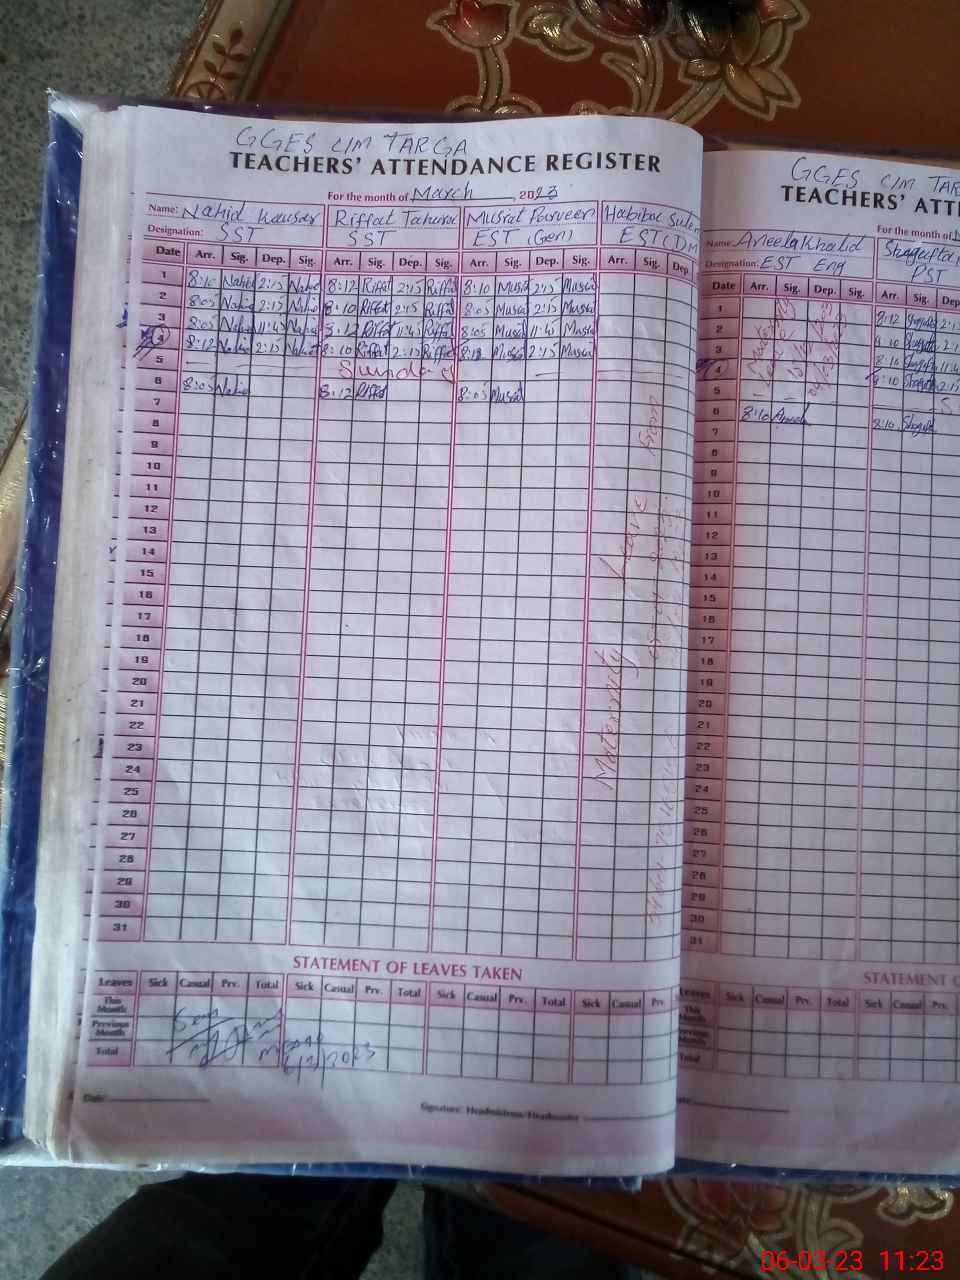 GGES C/M TARGA
TEACHERS' ATTENDANCE REGISTER
For the month of March, 2023
Name: Nahid Kausar Riffat Tahira Musrat Parveen Habiba
Designation: SST SST EST (Gen) EST (DM
Date Arr. Sig. Dep. Sig. Arr. Sig. Dep. Sig. Arr. Sig. Dep. Sig. Arr. Sig. Dep.
1 8:10 Nahid 2:15 Nahid 8:12 Riffat 2:15 Riffat 8:10 Musrat 2:15 Musrat
2 8:05 Nahid 2:15 Nahid 8:10 Riffat 2:15 Riffat 8:05 Musrat 2:15 Musrat
3 8:05 Nahid 11:45 Nahid 8:12 Riffat 11:45 Riffat 8:05 Musrat 11:45 Musrat
4 8:12 Nahid 2:15 Nahid 8:10 Riffat 2:15 Riffat 8:12 Musrat 2:15 Musrat
5 Sunday
6 8:05 Nahid 8:12 Riffat 8:05 Musrat
7
8
9
10
11
12
13
14
15
16
17
18
19
20
21
22
23
24
25
26
27
28
29
30
31
Maternity Leave from
STATEMENT OF LEAVES TAKEN
Leaves Sick Casual Prv. Total Sick Casual Prv. Total Sick Casual Prv. Total Sick Casual Prv.
This Month
Previous Month
Total
Seen
6/3/2023
Date
Signature: Headmistress/Headmaster
GGES C/M TAR
TEACHERS' ATTE
For the month of
Name: Aneela Khalid Shagufta
Designation: EST Eng PST
Date Arr. Sig. Dep. Sig. Arr. Sig. Dep
1 8:12 Shagufta 2:15
2 8:10 Shagufta 2:1
3 8:10 Shagufta 11:4
4 8:10 Shagufta 2:15
5 S
6 8:10 Aneela 8:10 Shagufta
7
8
9
10
11
12
13
14
15
16
17
18
19
20
21
22
23
24
25
26
27
28
29
30
31
STATEMENT O
Leaves Sick Casual Prv. Total Sick Casual Prv.
This Month
Previous Month
Total
06-03-23 11:23